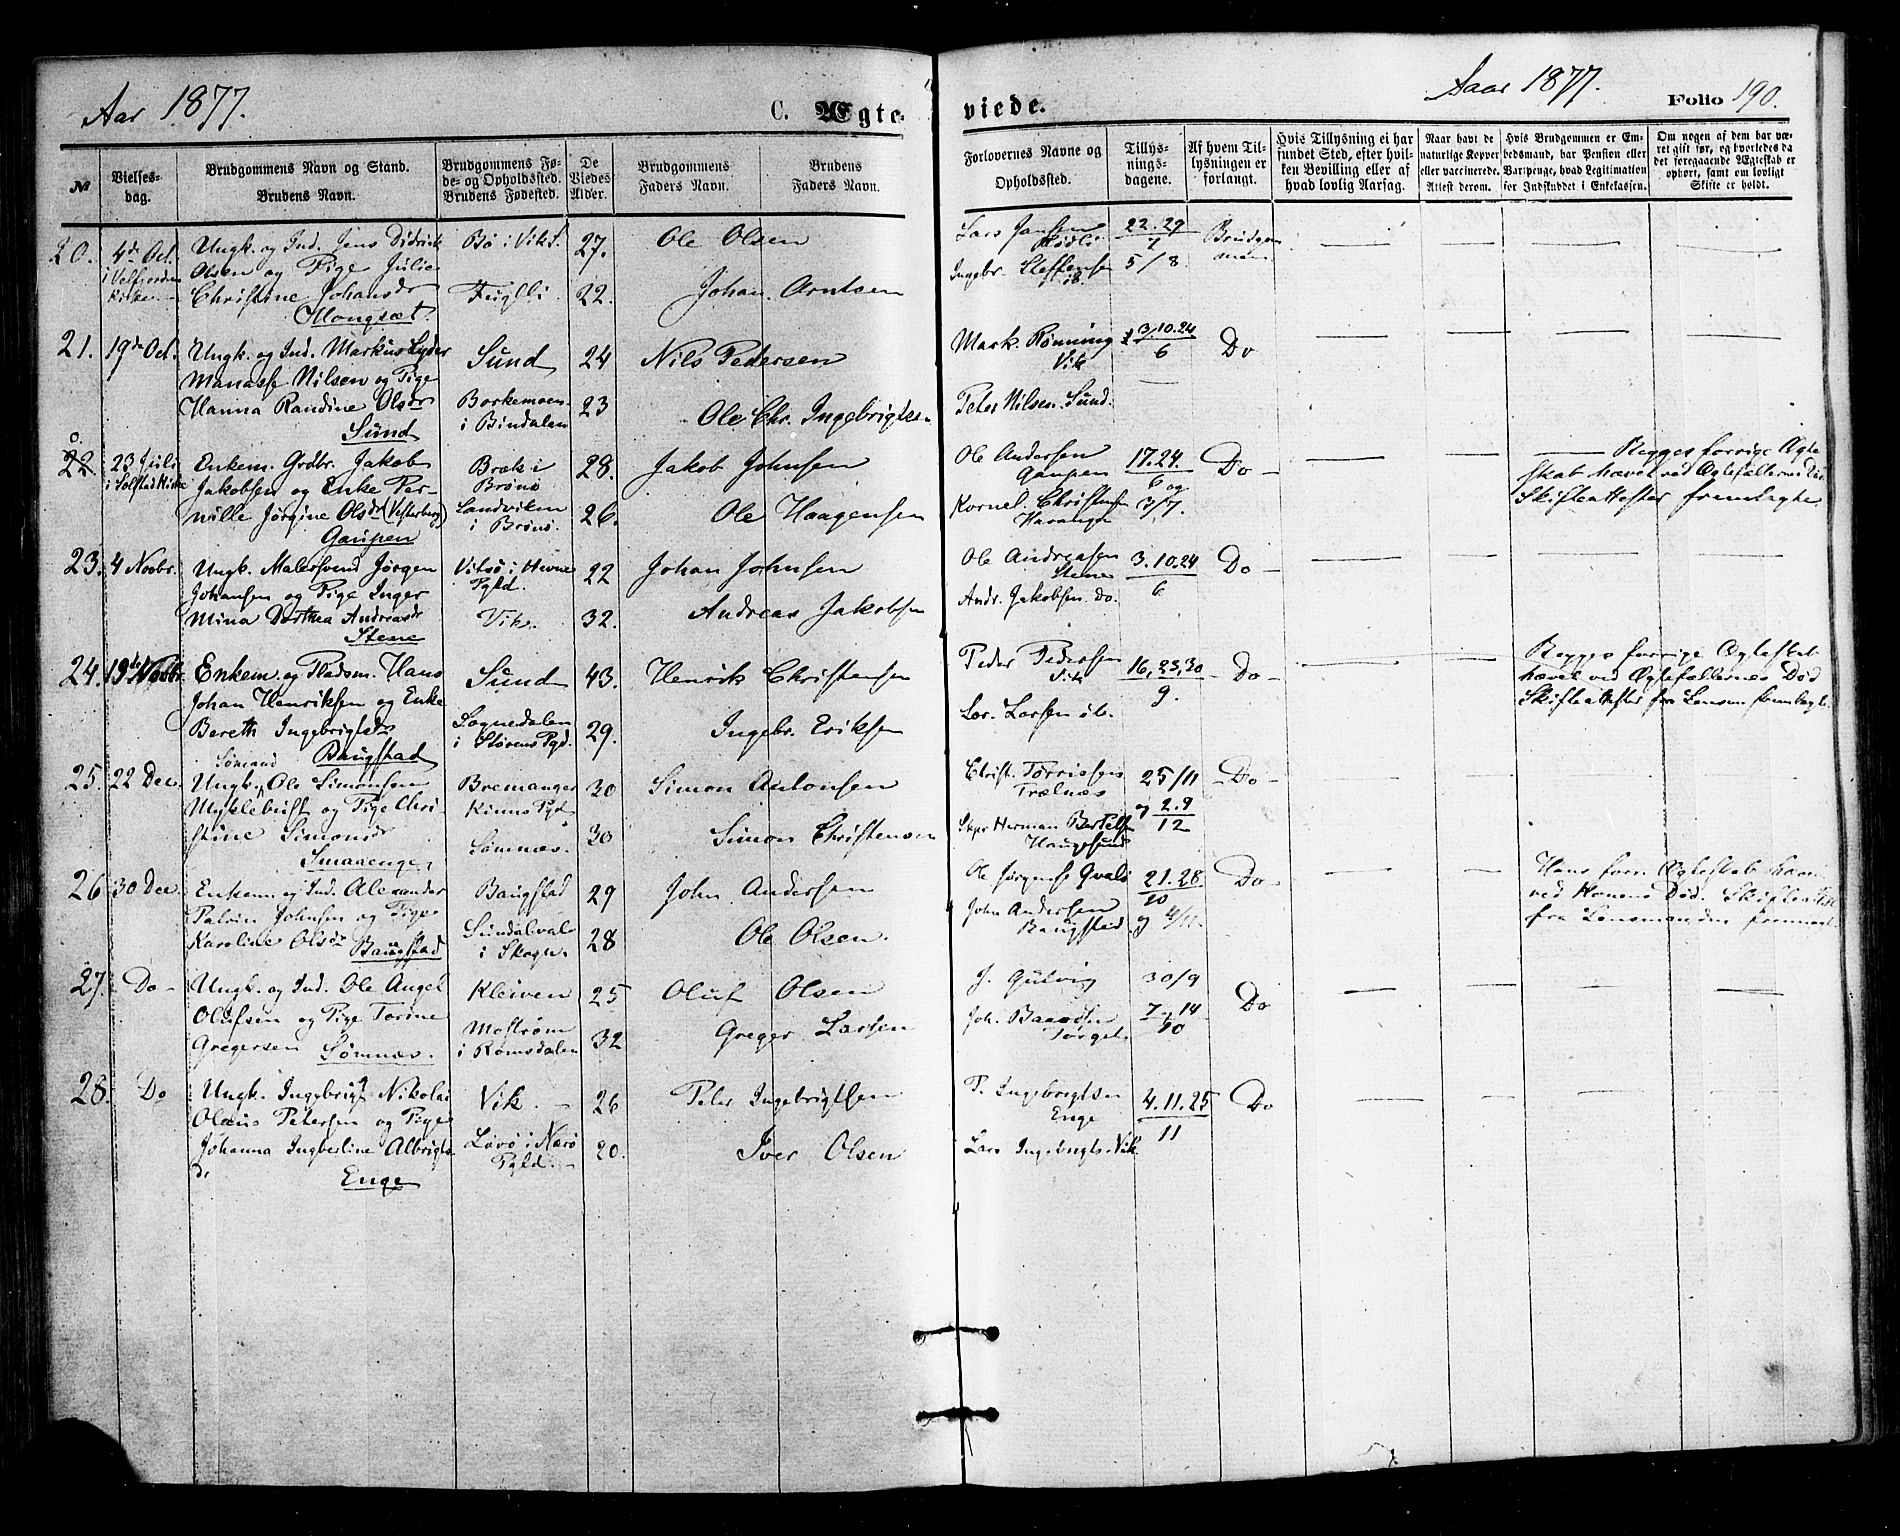 Aar 1877.
C. Ægte-
viede.
Aaar 1877.
Folio 190.
№
Vielses-
dag.
Brudgommens Navn og Stand.
Brudens Navn.
Brudgommens Fø-
de- og Opholdssted.
Brudens Fødested.
De
Viedes
Alder.
Brudgommens
Faders Navn.
Brudens
Faders Navn.
Forlovernes Navne og
Opholdssted.
Tillys-
nings-
dagene.
Af hvem Til-
lysningen er
forlangt.
Hvis Tillysning ei har
fundet Sted, efter hvil-
ken Bevilling eller af
hvad lovlig Aarsag.
Naar havt de
naturlige Kopper
eller vaccinerede.
Attest derom.
Hvis Brudgommen er Em-
bedsmand, har Pension eller
Vartpenge, hvad Legitimation
for Indskuddet i Enkekassen.
Om nogen af dem har væ-
ret gift før, og hvorledes da
det foregaaende Ægteskab er
ophørt, samt om lovligt
Skifte er holdt.
20. 4de Oct. Ungk. og Ind. Jens Didrik Bø i Vik 27. Ole Olsen Lars Jansen 22. 29 Brudgom
i Velfjorden Olsen og Pige Julie 7 men
Kirke Christine Johansdr Fuglli 22. Johan Arntsen Ingebr. Steffensen 5/8.
Mongsæt.
21. 19de Oct. Ungk. og Ind. Markus Lyder Sund 24 Nils Pedersen Mark. Rønning 3.10.24 Do
Manasse Nilsen og Pige Vik 6
Hanna Randine Olsdr Borkemoen 23 Ole Chr. Ingebrigtsen Peter Nilsen Sund.
Sund i Bindalen
22. 23 Juli Enkem. Grdbr. Jakob Bræk i 28. Jakob Johnsen Ole Andersen 17.24. Do Begges forrige Ægte
i Solstad Kirke Jakobsen og Enke Per- Brønø Gaupen 6 og skab hævet ved Ægtefællernes Død
nille Jørgine Olsdr (Vesterberg) Sandviken 26. Ole Haagensen Kornel. Christensen 3/7. Skifteattester fremlagte
Gaupen i Brønø.
23. 4 Novbr. Ungk. Malersvend Jørgen Vitsø i Hevne 22 Johan Johnsen Ole Andreasen 3.10.24 Do
Johansen og Pige Inger Pgld. Stene 6
Mina Dorthea Andreasdr Vik. 32. Andreas Jakobsen Andr. Jakobsen do.
Stene
24. 19de Novbr. Enkem. og Pladsm. Hans Sund 43. Henrik Christensen Peder Pedersen 16,23,30 Do Begges forrige Ægteskab
Johan Henriksen og Enke Vik 9. hævet ved Ægtefællernes Død
Bereth Ingebrigtsdr Sognedalen 29. Ingebr. Eriksen Lor. Larsen ib. Skifteattester fra Lensm. fremlagt
Baugstad i Størens Pgd.
Sømand
25. 22 Dec. Ungk. Ole Simonsen Bremanger 30 Simon Antonsen Christ. Torrissen 25/11 Do
Myklebust og Pige Chri- Kinns Pgd Trælnæs og 2.9
stine Simonsdr Sømnæs. 30 Simon Christensen Skpr Herman Bertelsen 12
Smaaenge, Haugesund
26 30 Dec. Enkem. og Ind. Alexander Baugstad 29 John Andersen Ole Jørgens. Qvalø 21.28. Do Hans forr. Ægteskab hævet
Palvin Johnsen og Pige 10 ved Konens Død. Skifteattest
Karoline Olsdr Baugstad Sundalval i Skogn. 28 Ole Olsen. John Andersen Baugstad og 4/11. fra Lensmanden fremlagt
27. Do Ungk. og Ind. Ole Angel Kleiven 25 Oluf Olsen J. Gutvig 30/9
Olufsen og Pige Torine 7 og 14 Do
Gregersen Sømnæs. Mostrøm i Romsdalen 32 Greger Larsen Joh. Baardsen Torget 10
28. Do Ungk. Ingebrigt Nikolai Vik. 26 Peter Ingebrigtsen P. Ingebrigtsen 4.11.25 Do
Olaus Petersen og Pige Enge 11
Johanna Ingberline Albrigts- Løvø i Nærø 20. Iver Olsen Lars Ingebrigts. Vik
dr Enge Pgld.